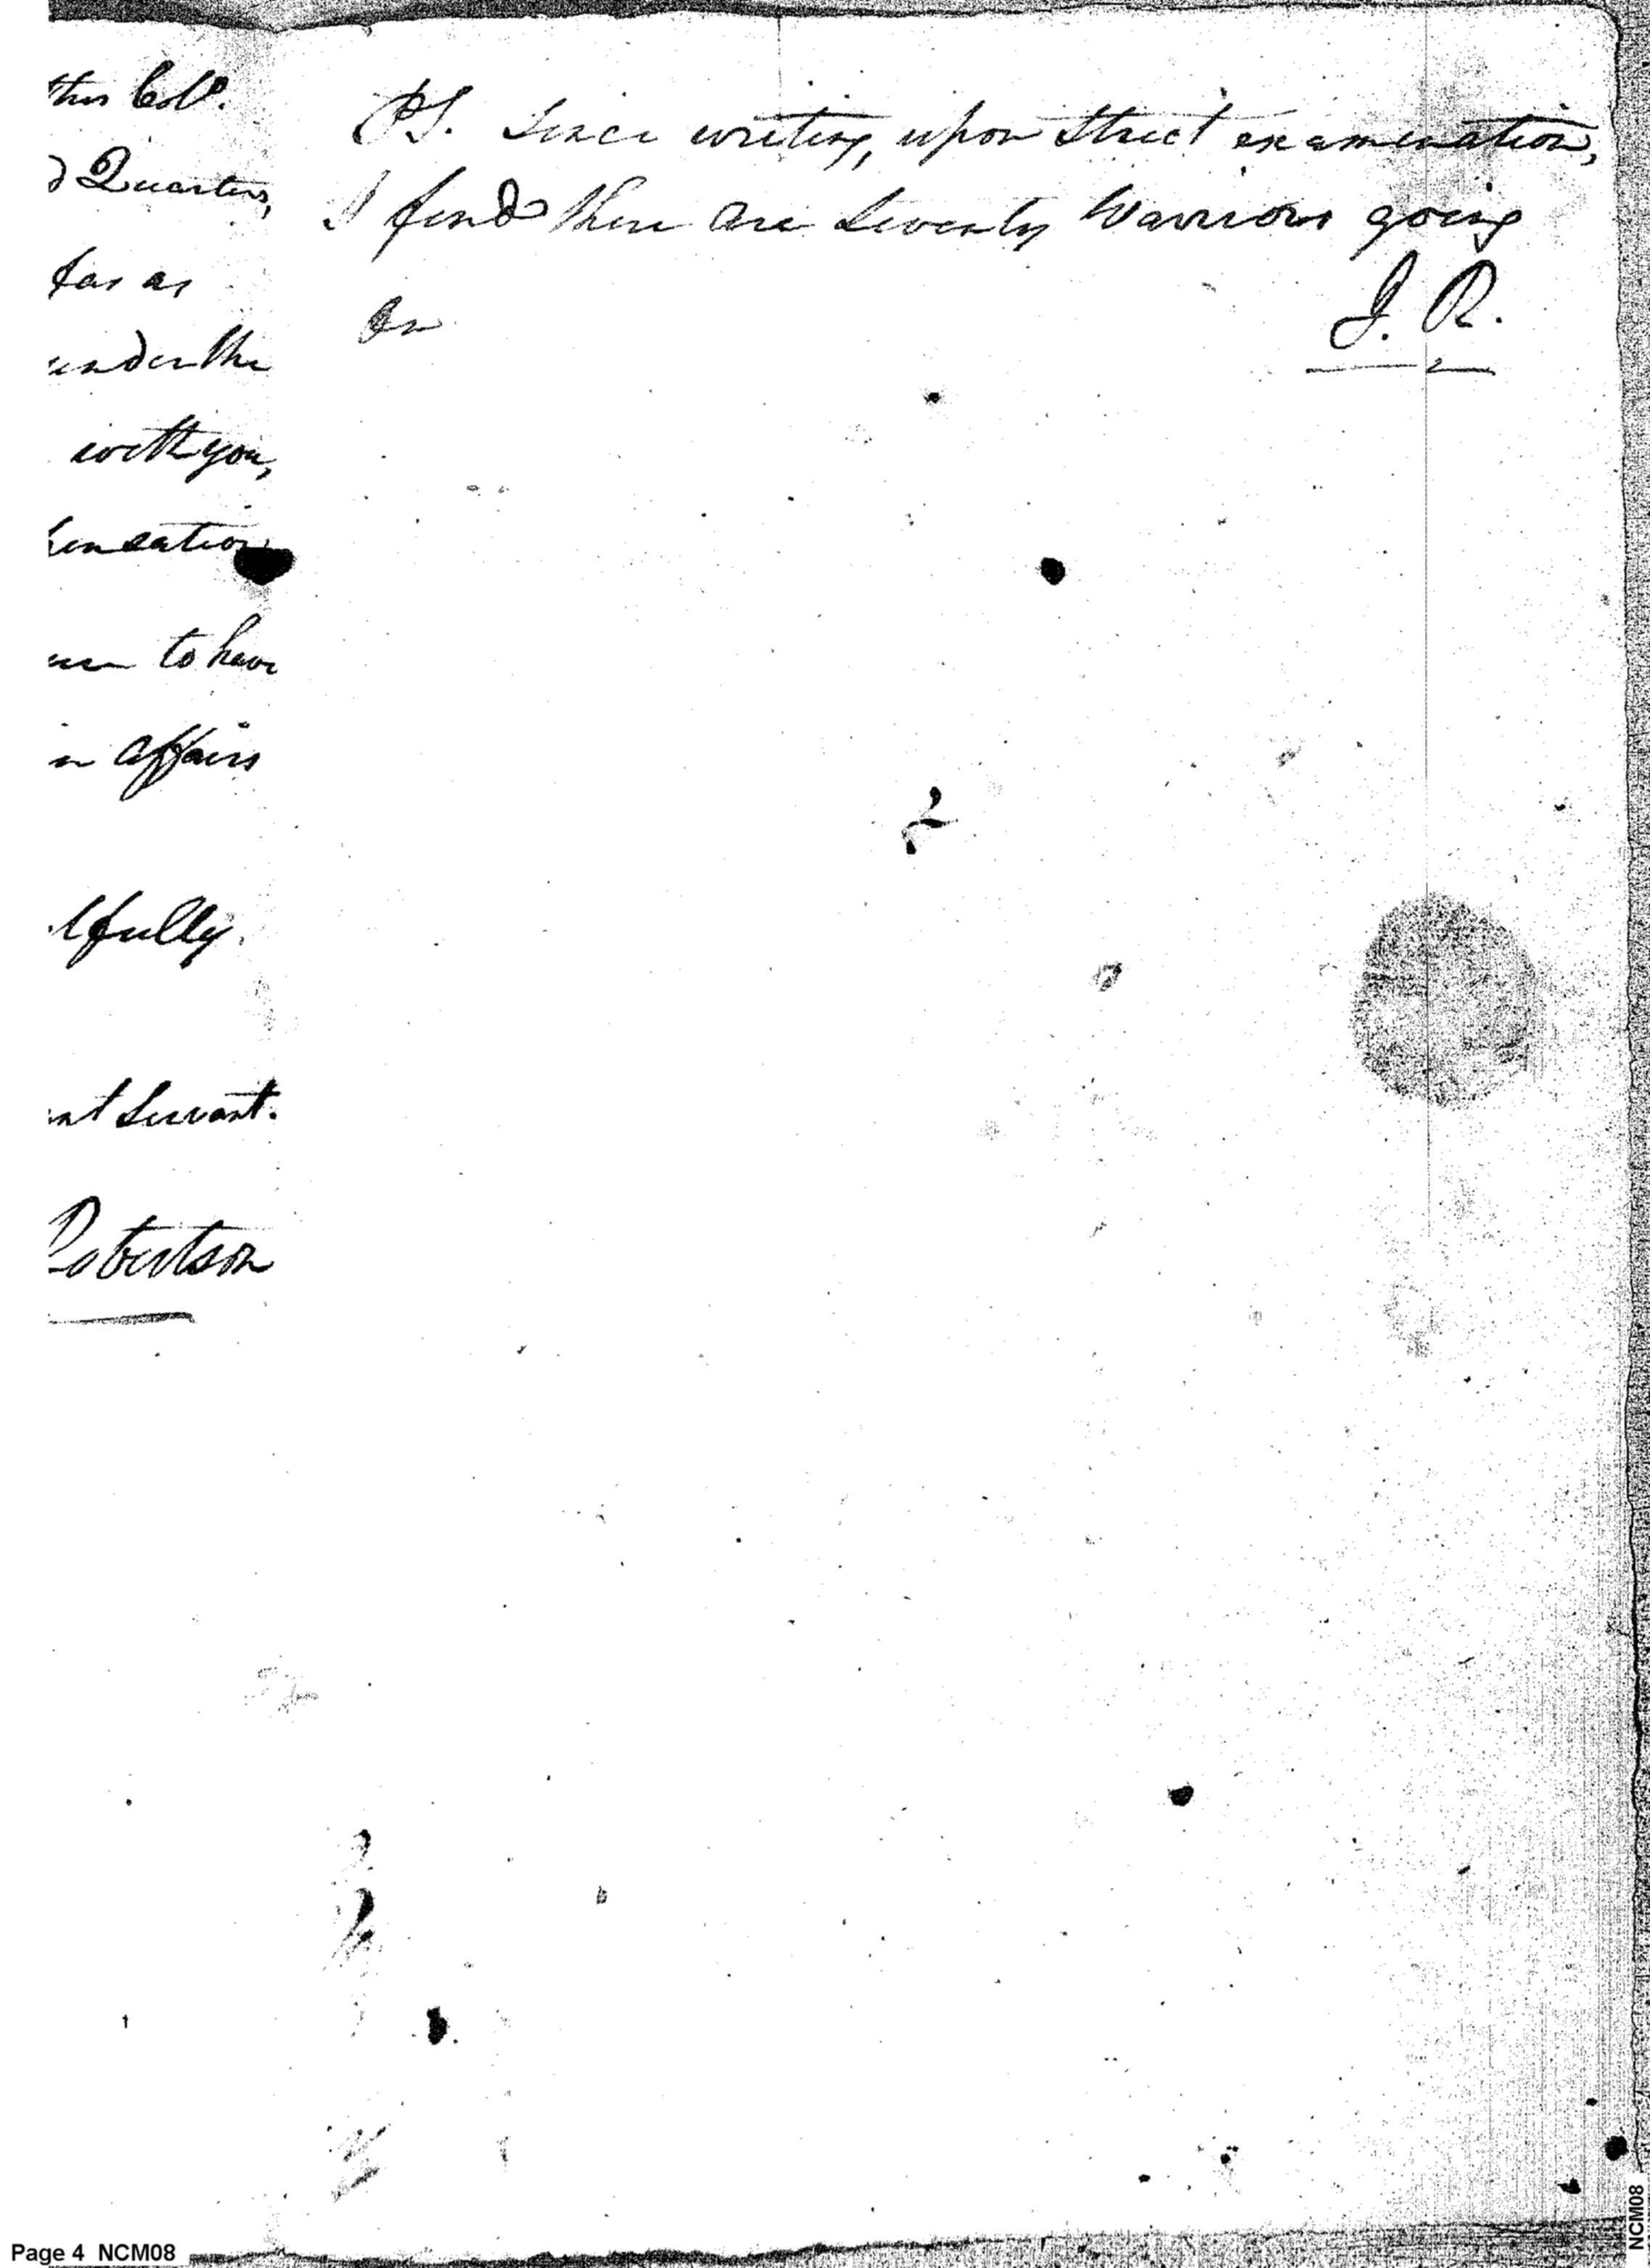 this Colo.
d Quarters,
far as
under the
with you,
pensation
me to have
in affairs
tfully.
ent Servant.
Robertson
PS. Since writing, upon strict examination,
I find there are seventy Warriors going
on
J. R.
Page 4 NCM08
NCM08